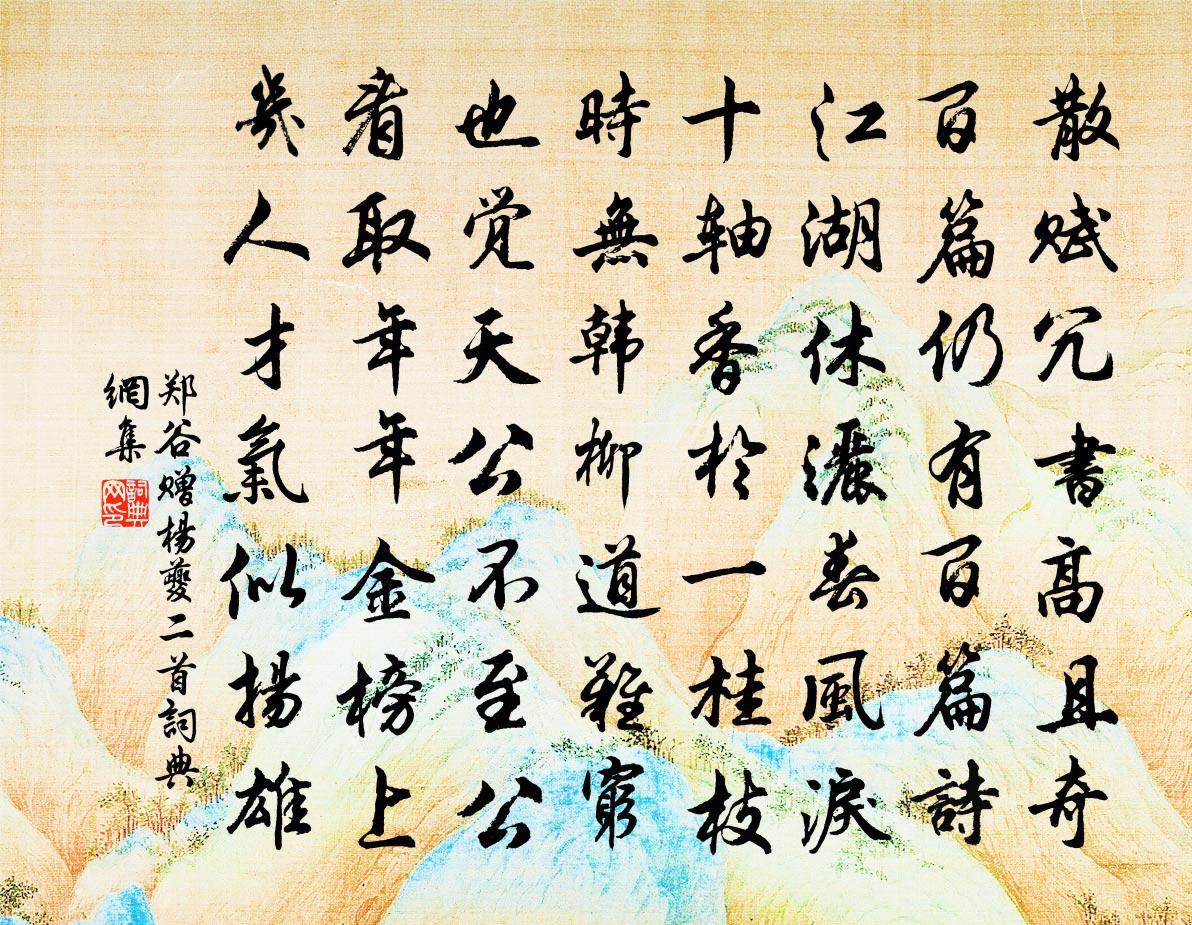 散赋冗書高且奇
百篇仍有百篇詩
江湖休灑春風淚
十轴香於一桂枝
時無韩柳道難窮
也觉天公不至公
看取年年金榜上
幾人才氣似揚雄
郑谷赠楊夔二首詞典
網集
詞典
网印